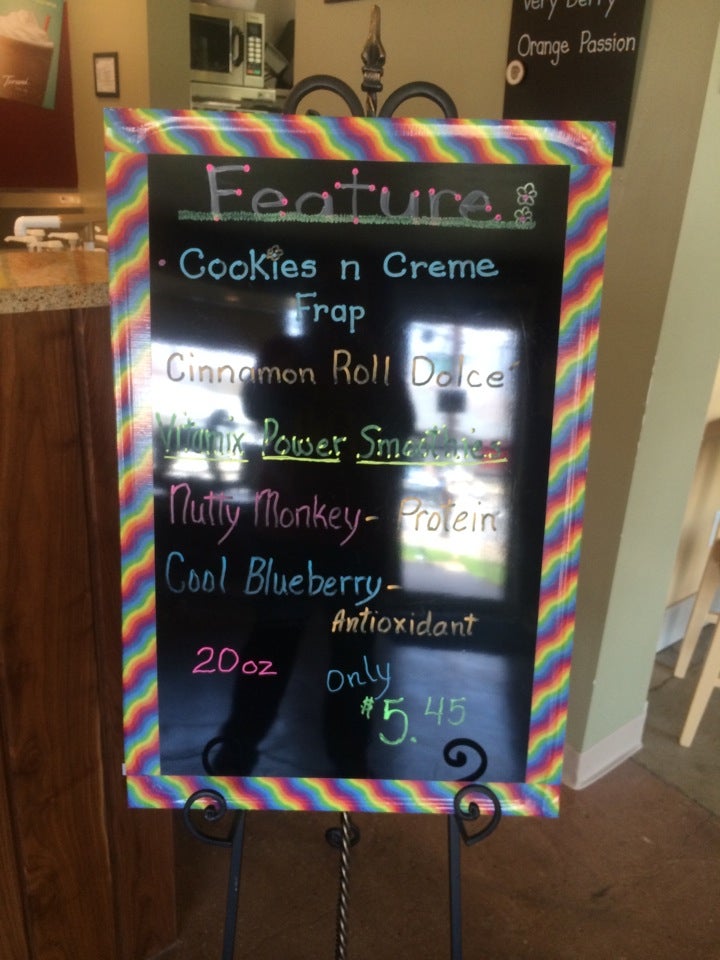 Very Berry
Orange Passion
Torani
Feature
Cookies n Creme
Frap
Cinnamon Roll Dolce'
Vitamix Power Smoothies
Nutty Monkey- Protein
Cool Blueberry-
Antioxidant
20oz only
$5.45